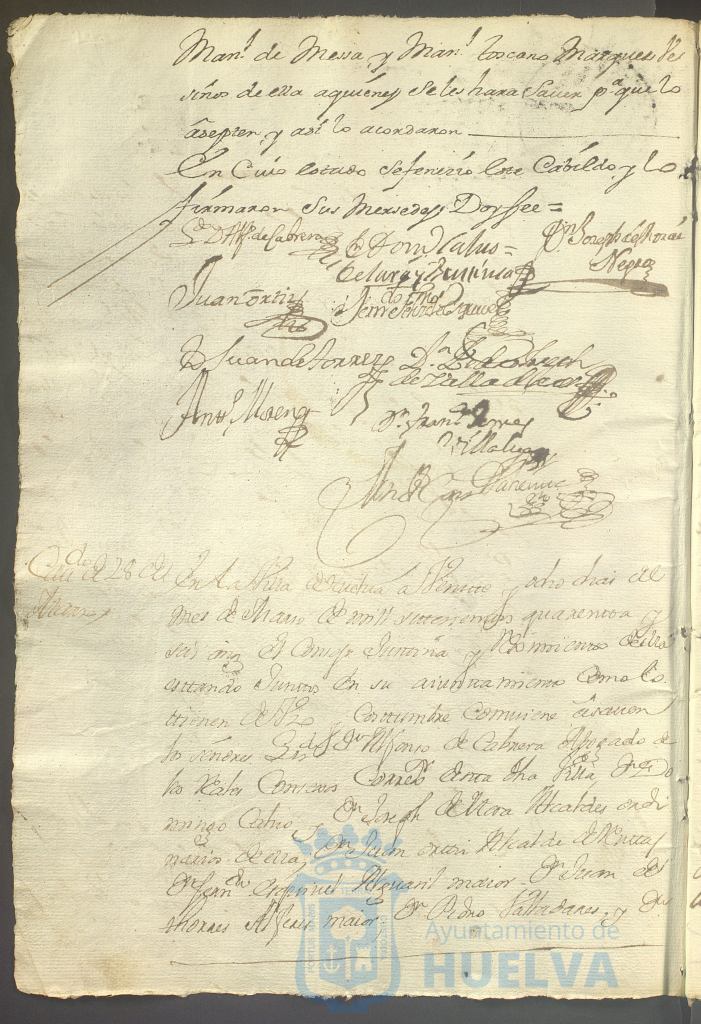 Man.l de Messa, y Man.l toscano Marques Ve
sinos de ella aquienes seles hara Saver p.a que lo
asepten, y asi lo acordaron
En Cuio estado sefenezio este Cabildo, y lo
firmaron Sus Mersedes, Doy fee =
L.do D. Alf.o de Cabrera
D.n Joseph de Mora
Negro
Juan ortiz
D. Juan de torres
de Valladares
Ant.o Moreno
D.n Fran.co
Villalva
Cav.do de 28 de
Marzo
En la Villa de Huelva a Veinte y ocho dias del
mes de Marzo de mill setezientos quarenta y
seis años el Consejo Justizia y Reximiento de ella
estando Juntos en su aiuntamiento como lo
tienen de Uso y Costumbre Combiene a saver
los señores Lis.do D.n Alfonso de Cabrera Abogado de
los Reales Consejos Correx.r desta dha Villa, D.n Do
mingo Calvo y D.n Joseph de Mora Alcaldes ordi
narios de ella, D.n Juan ortiz Alcalde de la
D.n Fern.do Esquivel Alguazil maior D.n Juan de
thorres Alferes maior, D.n Pedro Valladares, y D.n
Ayuntamiento de
HUELVA